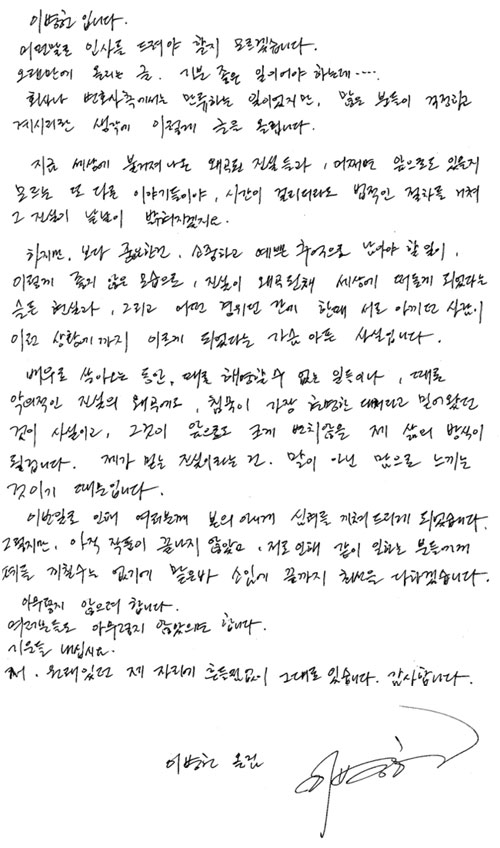 이병헌 입니다.
어떤말로 인사를 드려야 할지 모르겠습니다.
오랜만에 올리는 글. 기분 좋은 일이어야 하는데....
회사나 변호사측에서는 만류하는 일이었지만, 많은 분들이 걱정하고
계시리란 생각에 이렇게 글을 올립니다.
지금 세상에 불거져나온 왜곡된 진실들과, 어쩌면 앞으로도 있을지
모르는 또 다른 이야기들이야, 시간이 걸리더라도 법적인 절차를 거쳐
그 진실이 낱낱이 밝혀지겠지요.
하지만, 보다 중요한건, 소중하고 예쁜 추억으로 남아야 할 일이,
이렇게 좋지 않은 모습으로, 진실이 왜곡된채 세상에 떠돌게 되었다는
슬픈 현실과, 그리고 어떤 경위던 간에 한때 서로 아끼던 사람이
이런 상황에까지 이르게 되었다는 가슴 아픈 사실입니다.
배우로 살아오는 동안, 때로 해명할 수 없는 일들이나, 때로
악의적인 진실의 왜곡에도, 침묵이 가장 현명한 대처라고 믿어왔던
것이 사실이고, 그것이 앞으로도 크게 변치않을 제 삶의 방식이
될겁니다. 제가 믿는 진실이라는 건. 말이 아닌 맘으로 느끼는
것이기 때문입니다.
이번일로 인해 여러분께 본의 아니게 심려를 끼쳐 드리게 되었습니다.
그렇지만, 아직 작품이 끝나지 않았고, 저로 인해 같이 일하는 분들에게
폐를 끼칠수는 없기에 맡은바 소임에 끝까지 최선을 다하겠습니다.
아무렇지 않으려 합니다.
여러분들도 아무렇지 않았으면 합니다.
기운들 내십시요.
저. 원래있던 제 자리에 흔들림없이 그대로 있습니다. 감사합니다.
이병헌 올림